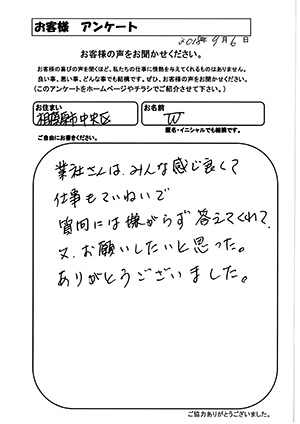 お客様 アンケート
2018年9月6日
お客様の声をお聞かせください。
お客様の喜びの声を聞くほど、私たちの仕事に情熱を与えてくれるものはありません。
良い事、悪い事、どんな事でも結構です。ぜひ、お客様の声をお聞かせください。
(このアンケートをホームページやチラシでご紹介させて下さい。)
お住まい
相模原市中央区
お名前
W
匿名・イニシャルでも結構です。
ご自由にお書きください。
業社さんは、みんな感じ良くて
仕事もていねいで
質問には嫌がらず答えてくれて、
又、お願いしたいと思った。
ありがとうございました。
ご協力ありがとうございました。